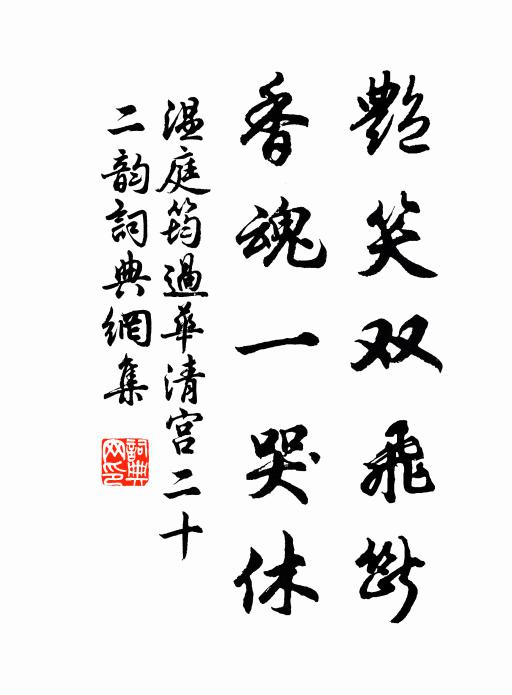 艷笑双飛斷
香魂一哭休
温庭筠過華清宮二十
二韵詞典網集
詞典网印